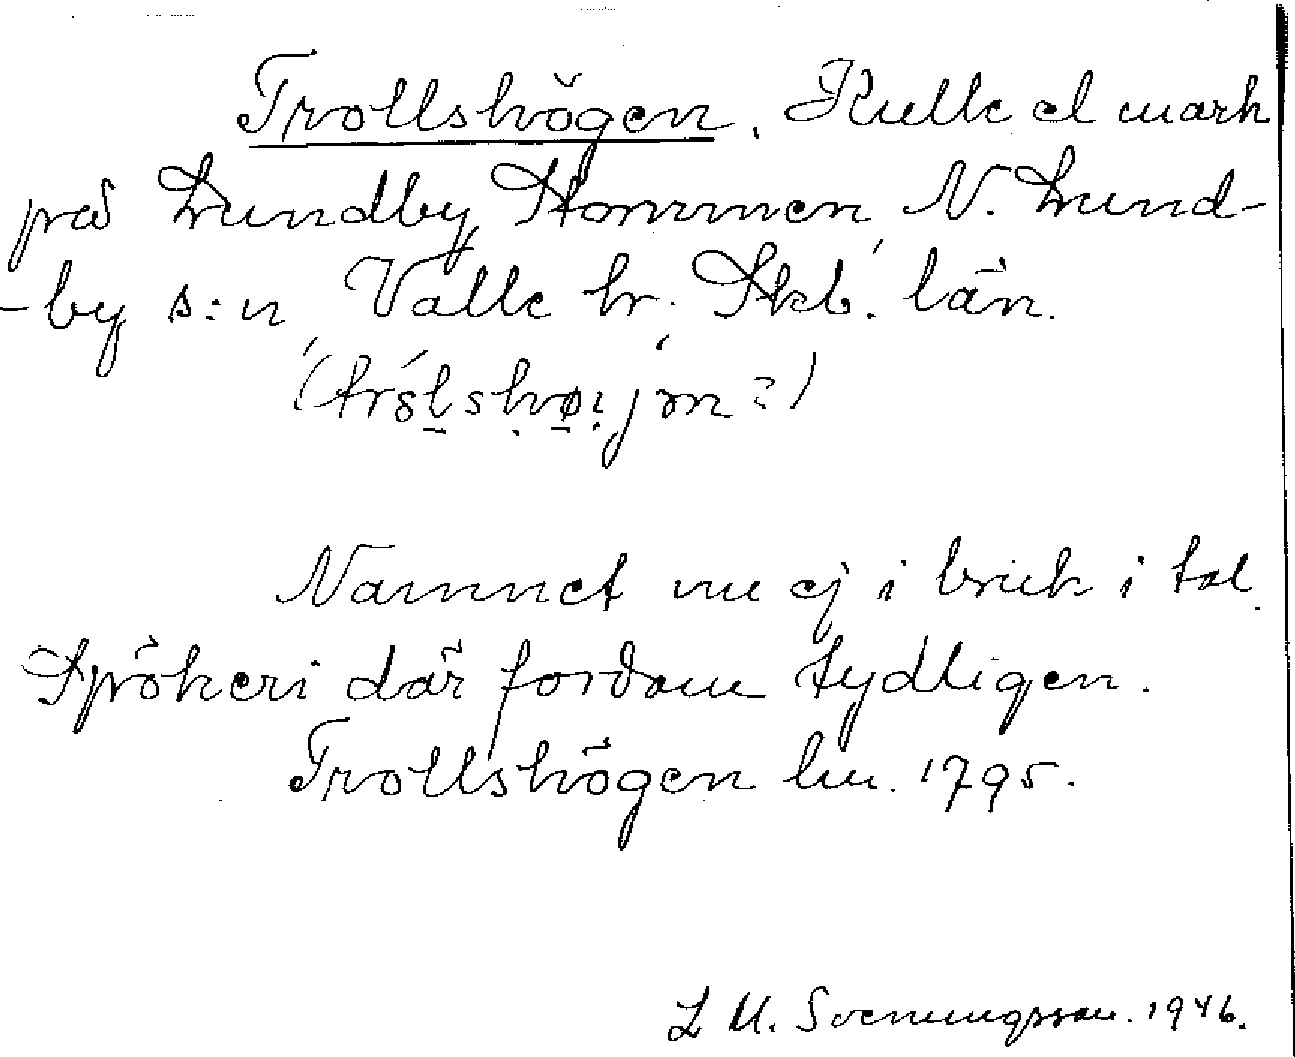 Trollshögen. Kulle el mark
på Lundby Stommen, N. Lund-
-by s:n, Valle hr. Skb. län.
Namnet nu ej i bruk i tal.
Spökeri där fordom tydligen.
Trollshögen lm. 1795.
L M. Svenungsson. 1946.